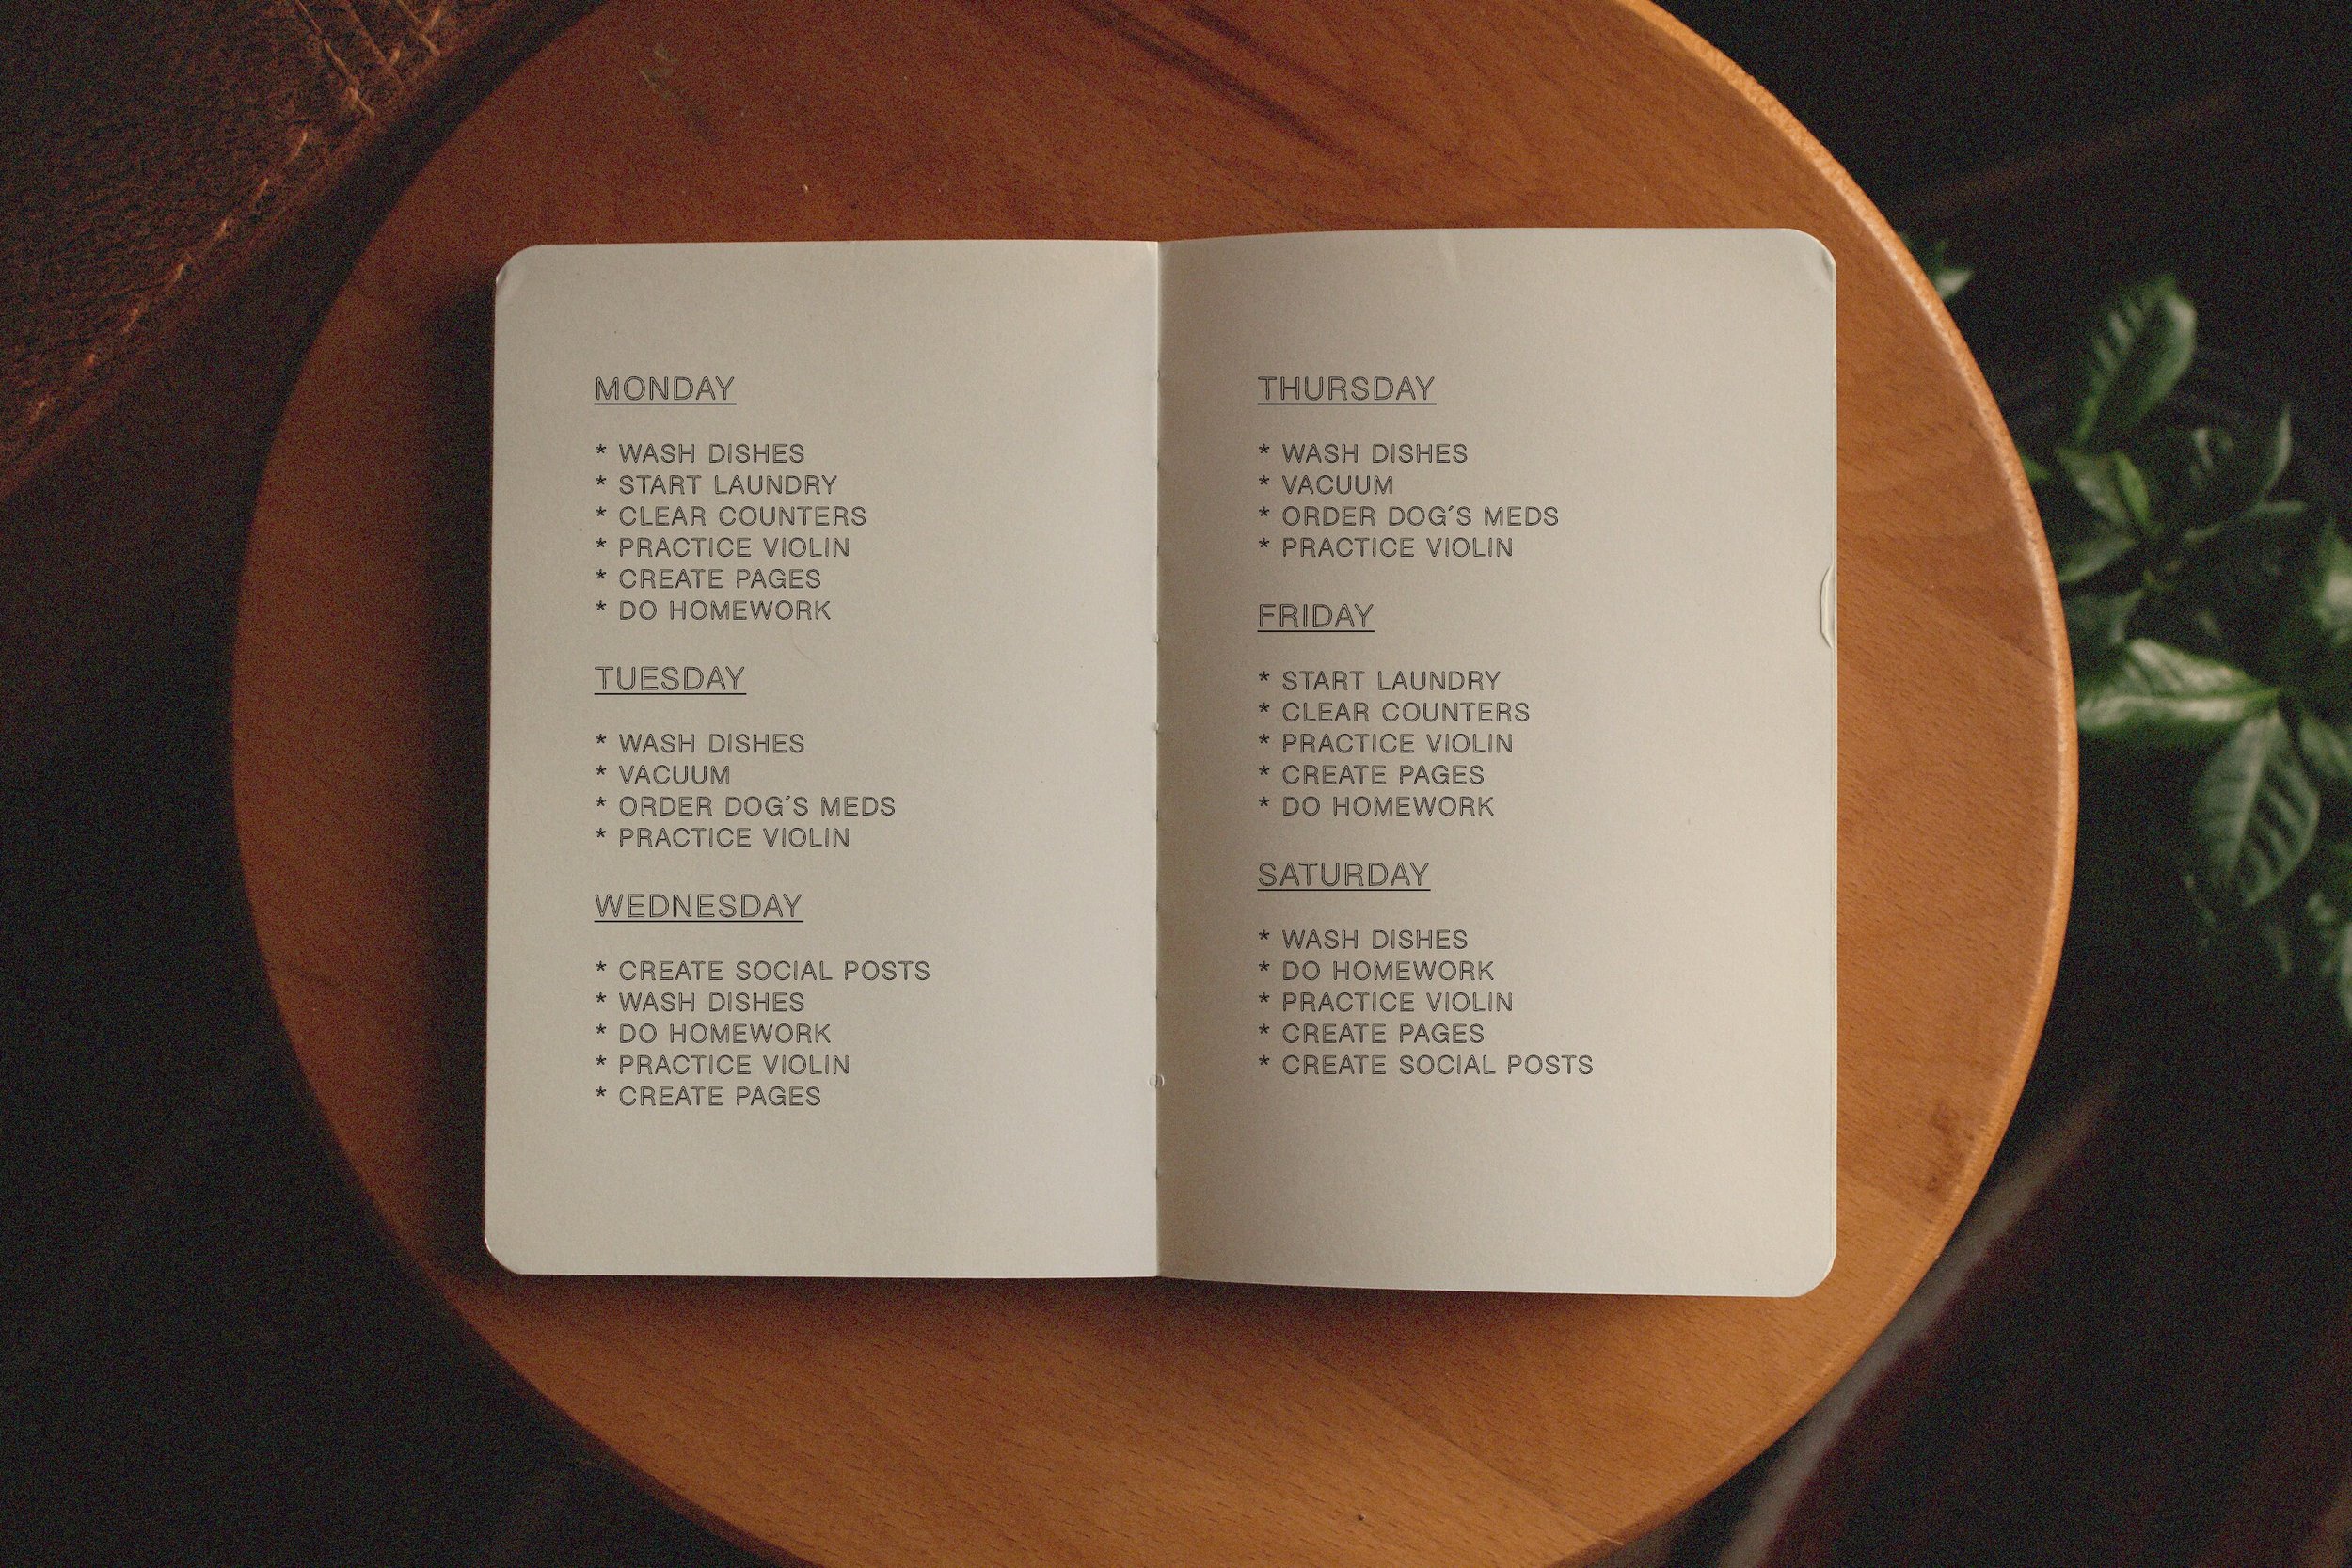 MONDAY
* WASH DISHES
* START LAUNDRY
* CLEAR COUNTERS
* PRACTICE VIOLIN
* CREATE PAGES
* DO HOMEWORK
TUESDAY
* WASH DISHES
* VACUUM
* ORDER DOG´S MEDS
* PRACTICE VIOLIN
WEDNESDAY
* CREATE SOCIAL POSTS
* WASH DISHES
* DO HOMEWORK
* PRACTICE VIOLIN
* CREATE PAGES
THURSDAY
* WASH DISHES
* VACUUM
* ORDER DOG´S MEDS
* PRACTICE VIOLIN
FRIDAY
* START LAUNDRY
* CLEAR COUNTERS
* PRACTICE VIOLIN
* CREATE PAGES
* DO HOMEWORK
SATURDAY
* WASH DISHES
* DO HOMEWORK
* PRACTICE VIOLIN
* CREATE PAGES
* CREATE SOCIAL POSTS